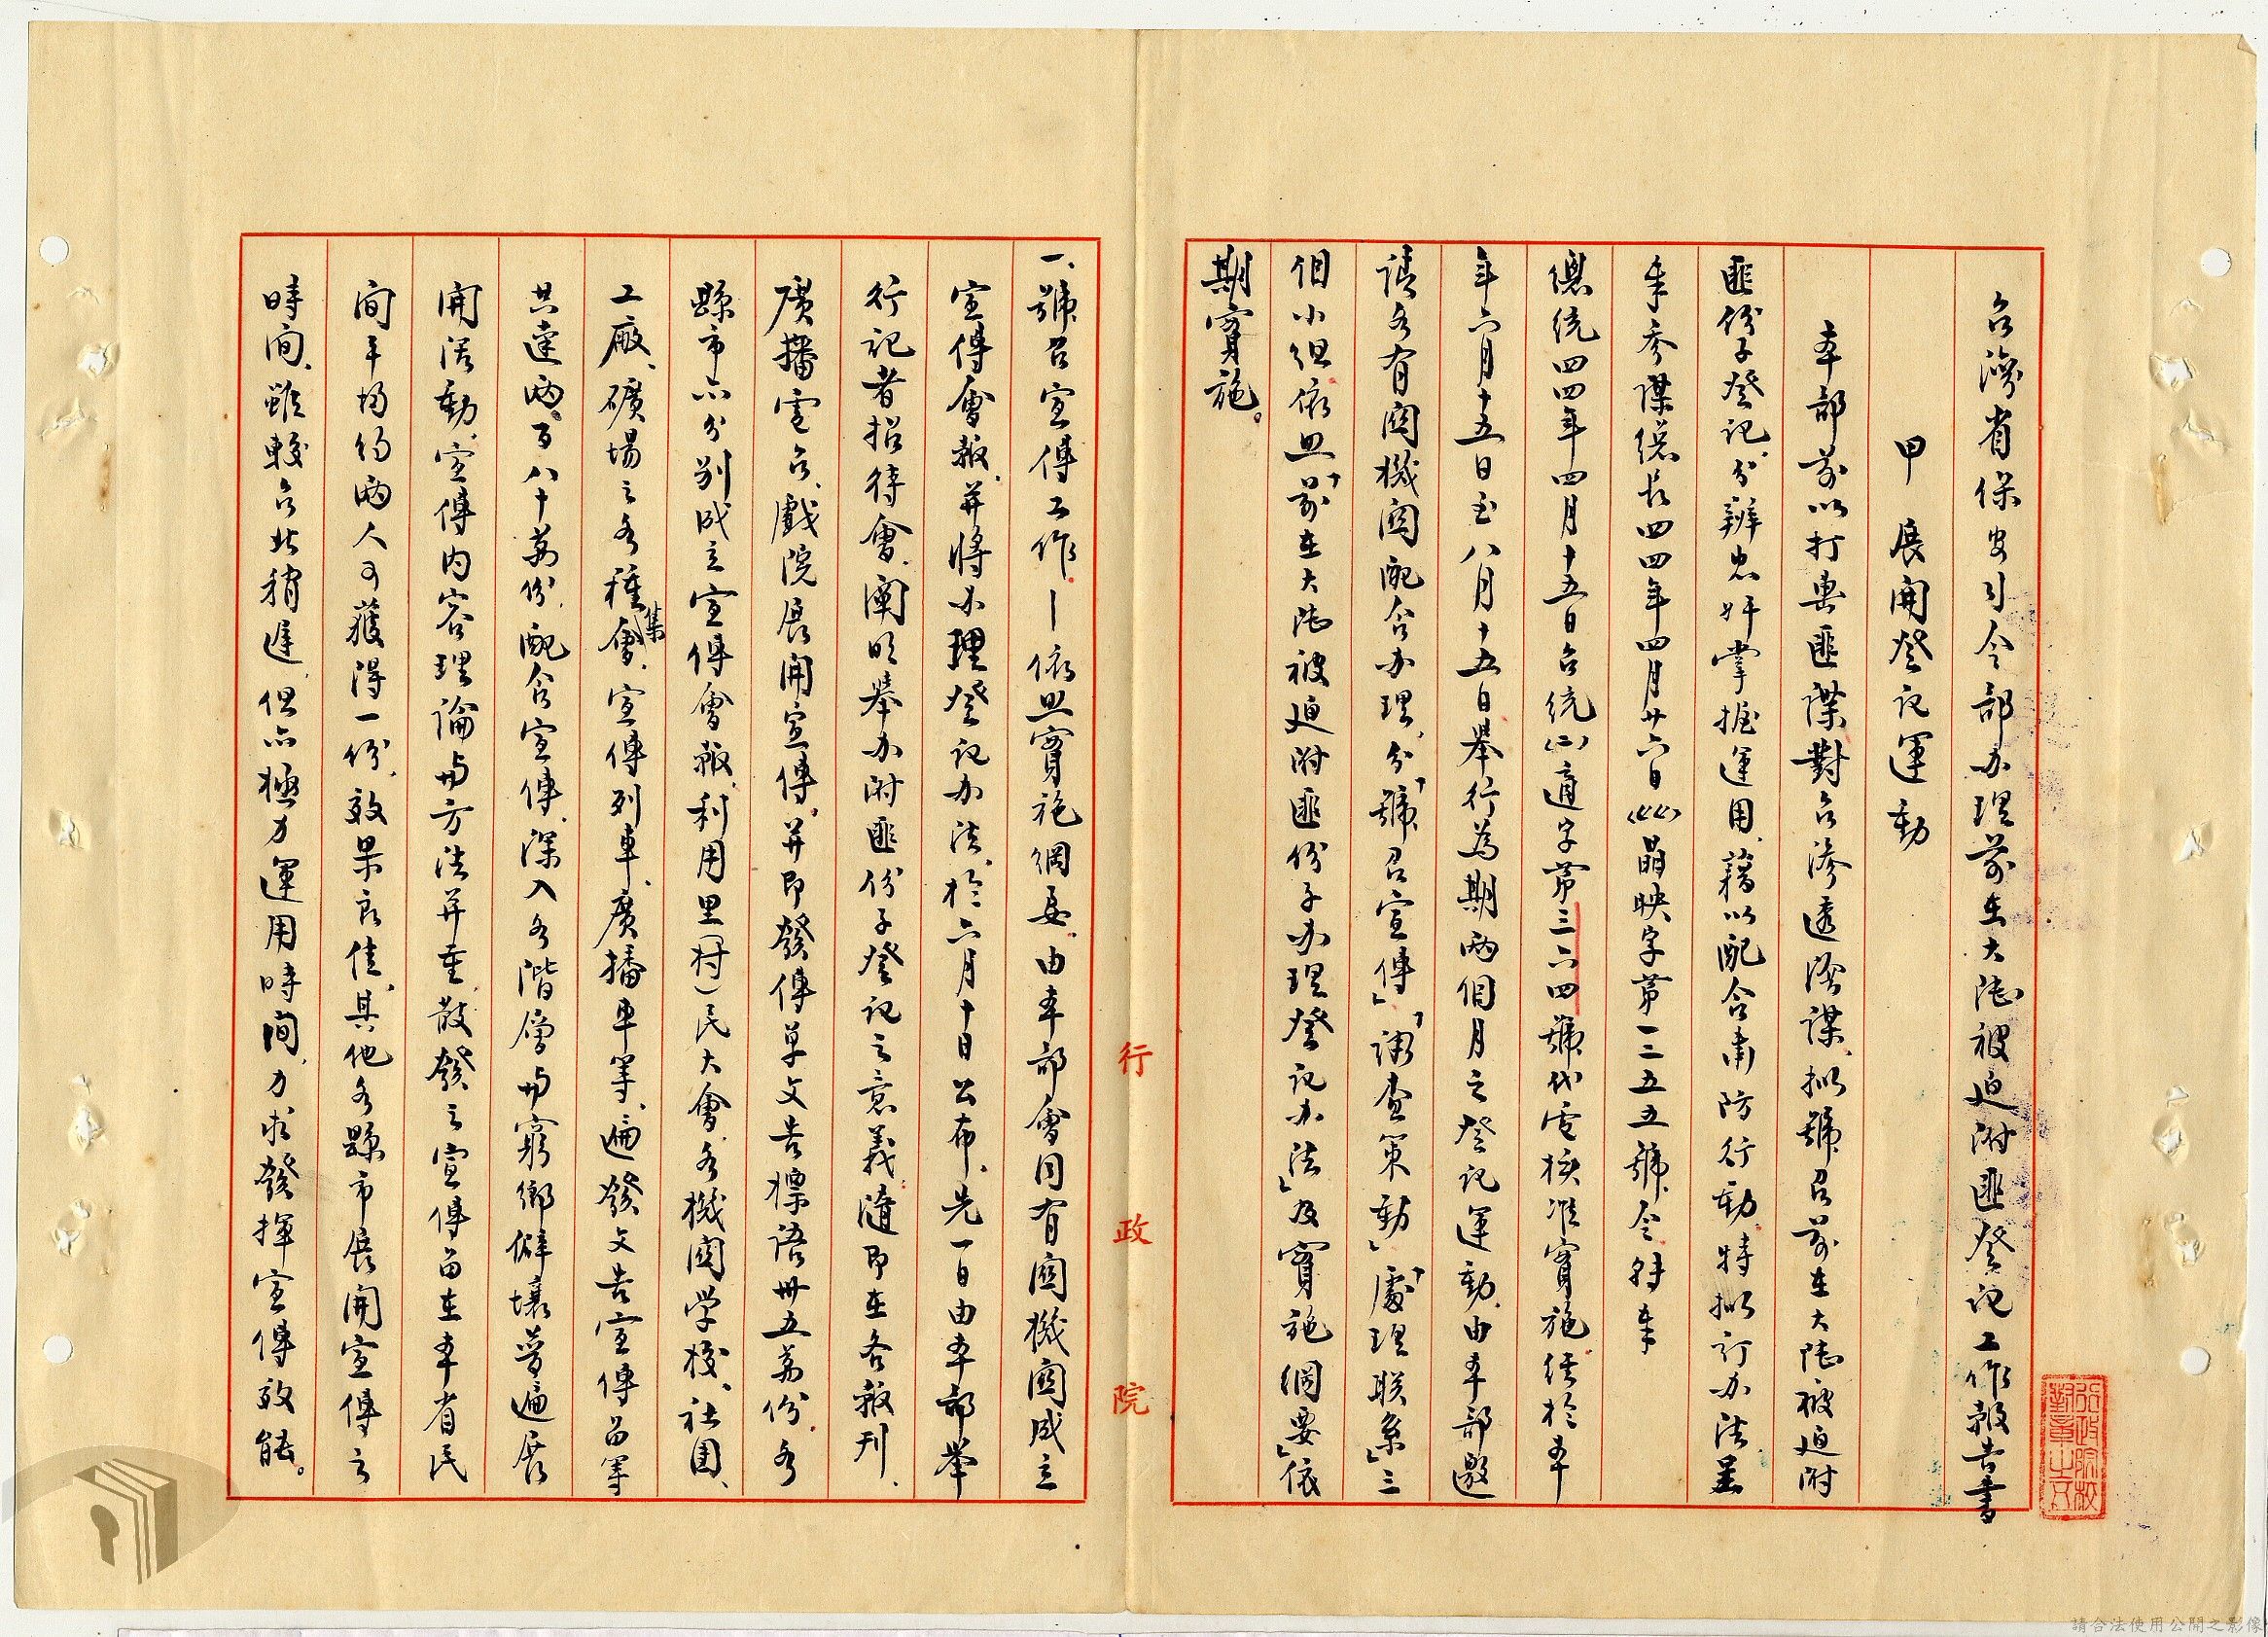 台灣省保安司令部办理前在大陸被迫附匪登記工作報告書
甲　展開登記運動
本部前以打擊匪諜對台滲透陰謀，擬號召前在大陸被迫附
匪份子登記，分辨忠奸掌握運用，藉以配合肅防行動，特擬訂办法呈
奉參謀總長四四年四月廿六日(44)晶映字第一三五五號令轉奉
總統四四年四月十五日台統(二)適字第三六四號代電核准實施，經於本
年六月十五日至八月十五日舉行為期兩個月之登記運動，由本部邀
請各有關機關配合办理，分「號召宣傳」「調查策動」「處理联系」三
個小組依照「前在大陸被迫附匪份子办理登記办法」及「實施綱要」依
期實施。
行政院
一、號召宣傳工作—依照實施綱要，由本部會同有關機關成立
宣傳會報，并將办理登記办法，於六月十日公布，先一日由本部舉
行記者招待會，闡明舉办附匪份子登記之意義，隨即在各報刊、
廣播電台、戲院展開宣傳，并即發傳單文告標語卅五萬份，各
縣市亦分別成立宣傳會報，利用里(村)民大會，各機關学校、社團、
工廠、礦場之各種集會，宣傳列車，廣播車等，遍發文告宣傳品等
共達兩百八十萬份，配合宣傳，深入各階層與窮鄉僻壤普遍展
開活動，宣傳內容理論與方法并重，散發之宣傳品在本省民
間平均約兩人可獲得一份，效果良佳，其他各縣市展開宣傳之
時間，雖較台北稍遲，但亦極力運用時間，力求發揮宣傳效能。
行政院校對章之六
請合法使用公開之影像